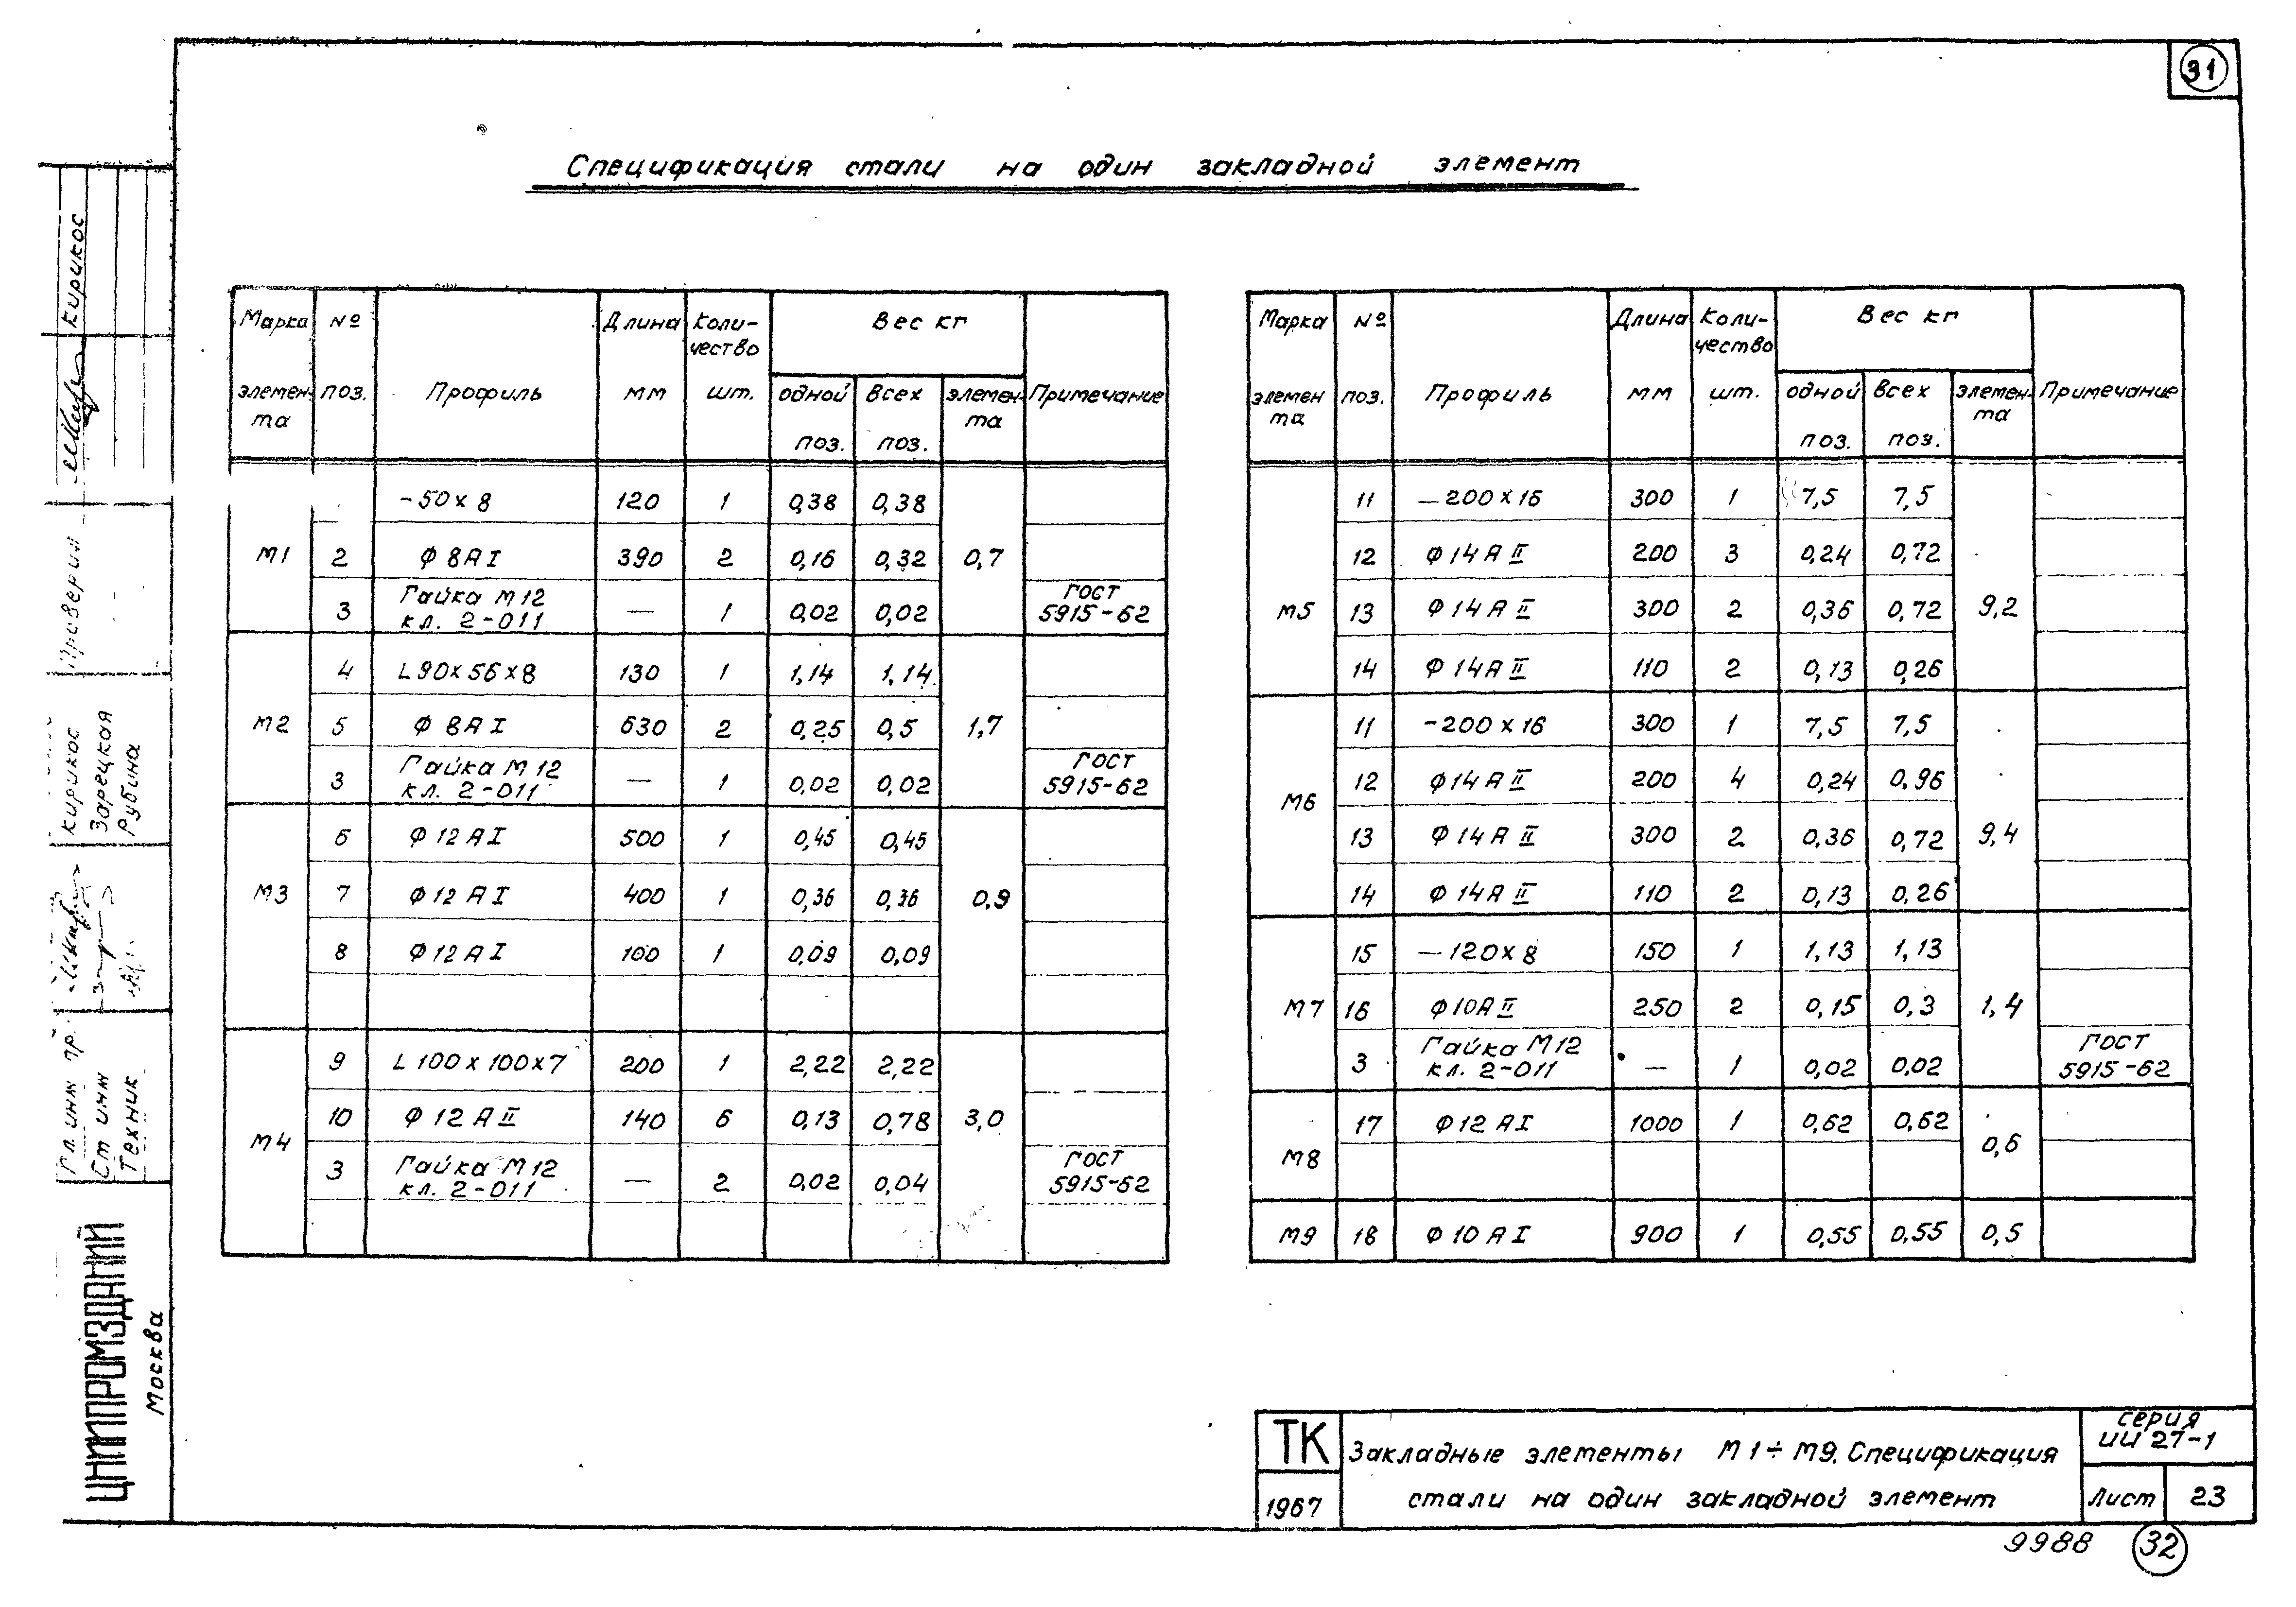 31
Спецификация стали на один закладной элемент
Марка элемен-та | № поз. | Профиль | Длина мм | Коли-чество шт. | Вес кг | Примечание
одной поз. | Всех поз. | элемен-та
М1 | | -50х8 | 120 | 1 | 0,38 | 0,38 | 0,7
2 | Ф 8АI | 390 | 2 | 0,16 | 0,32
3 | Гайка М12 кл. 2-011 | — | 1 | 0,02 | 0,02 | ГОСТ 5915-62
М2 | 4 | L90х56х8 | 130 | 1 | 1,14 | 1,14 | 1,7
5 | Ф 8АI | 630 | 2 | 0,25 | 0,5
3 | Гайка М12 кл. 2-011 | — | 1 | 0,02 | 0,02 | ГОСТ 5915-62
М3 | 6 | Ф 12 АI | 500 | 1 | 0,45 | 0,45 | 0,9
7 | Ф 12 АI | 400 | 1 | 0,36 | 0,36
8 | Ф 12 АI | 100 | 1 | 0,09 | 0,09
М4 | 9 | L 100х100х7 | 200 | 1 | 2,22 | 2,22 | 3,0
10 | Ф 12 АII | 140 | 6 | 0,13 | 0,78
3 | Гайка М12 кл. 2-011 | — | 2 | 0,02 | 0,04 | ГОСТ 5915-62
Марка элемен та | № поз. | Профиль | Длина мм | Коли-чество шт. | Вес кг | Примечание
одной поз. | Всех поз. | элемен-та
М5 | 11 | —200х16 | 300 | 1 | 7,5 | 7,5 | 9,2
12 | Ф14АII | 200 | 3 | 0,24 | 0,72
13 | Ф14АII | 300 | 2 | 0,36 | 0,72
14 | Ф14АII | 110 | 2 | 0,13 | 0,26
М6 | 11 | -200х16 | 300 | 1 | 7,5 | 7,5 | 9,4
12 | Ф14АII | 200 | 4 | 0,24 | 0,96
13 | Ф14АII | 300 | 2 | 0,36 | 0,72
14 | Ф14АII | 110 | 2 | 0,13 | 0,26
М7 | 15 | —120х8 | 150 | 1 | 1,13 | 1,13 | 1,4
16 | Ф10АII | 250 | 2 | 0,15 | 0,3
3 | Гайка М12 кл. 2-011 | — | 1 | 0,02 | 0,02 | ГОСТ 5915-62
М8 | 17 | Ф12 АI | 1000 | 1 | 0,62 | 0,62 | 0,6
М9 | 18 | Ф 10 АI | 900 | 1 | 0,55 | 0,55 | 0,5
кирикос
Проверил
кирикос
Зарецкая
Рубина
Гл. инж пр.
Ст инж
Техник
ЦНИИПРОМЗДАНИЙ
Москва
ТК
1967
Закладные элементы М1÷М9. Спецификация
стали на один закладной элемент
серия
ИИ 27-1
Лист 23
9988
32